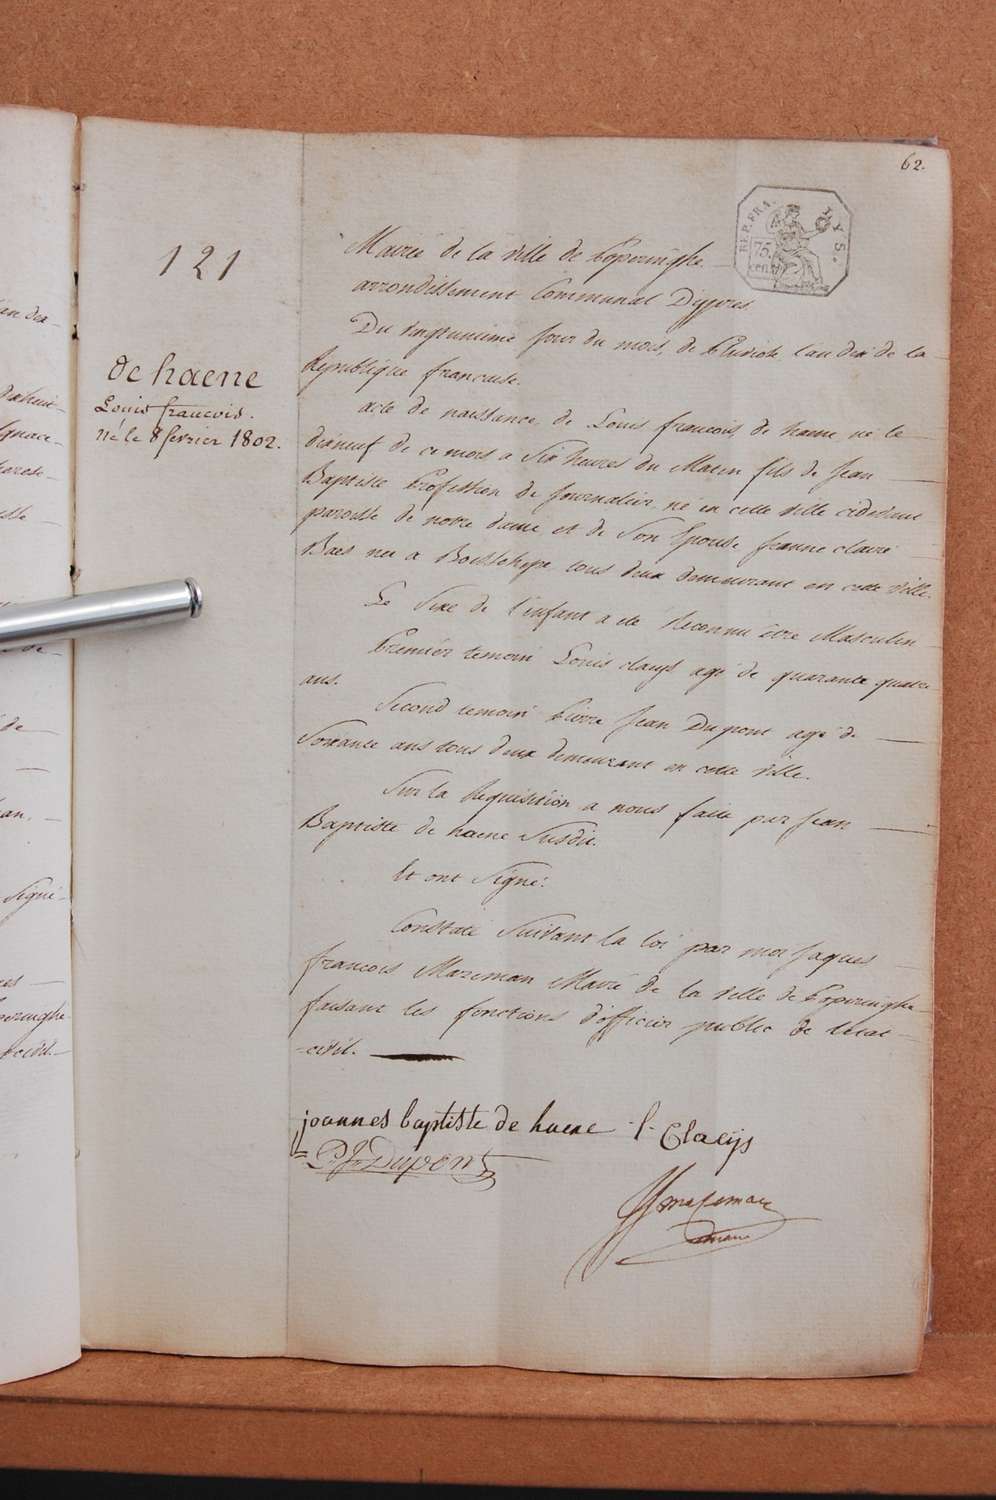 62.
REP. FRA.
75
cent.
LYS.
121
de haene
Louis francois.
né le 8 fevrier 1802.
Mairie de la ville de Poperinghe
arrondissement Communal D'ypres
Du vingtunieme jour du mois de Pluviose l'an dix de la
Republique francaise.
acte de naissance de Louis francois de haene né le
dixneuf de ce mois a Six heures du Matin fils de Jean
Baptiste Profession de Journalier, né en cette ville cidevant
paroisse de notre dame, et de Son Epouse Jeanne claire
Baes née a Boesschepe tous deux demeurant en cette ville.
Le Sexe de l'enfant a eté Reconnu être Masculin
Premier temoin Louis claeys agé de quarante quatre
ans.
Second temoin Pierre Jean Dupont agé de
Soixante ans tous deux demeurant en cette ville.
Sur la Requisition a nous faite par Jean
Baptiste de haene Susdit.
Et ont Signé:
Constaté Suivant la loi par moi Jaques
francois Mazeman Maire de la ville de Poperinghe
faisant les fonctions d'officier public de letat
civil.
joannes baptiste de haene l. Claeijs
P. J. Dupont